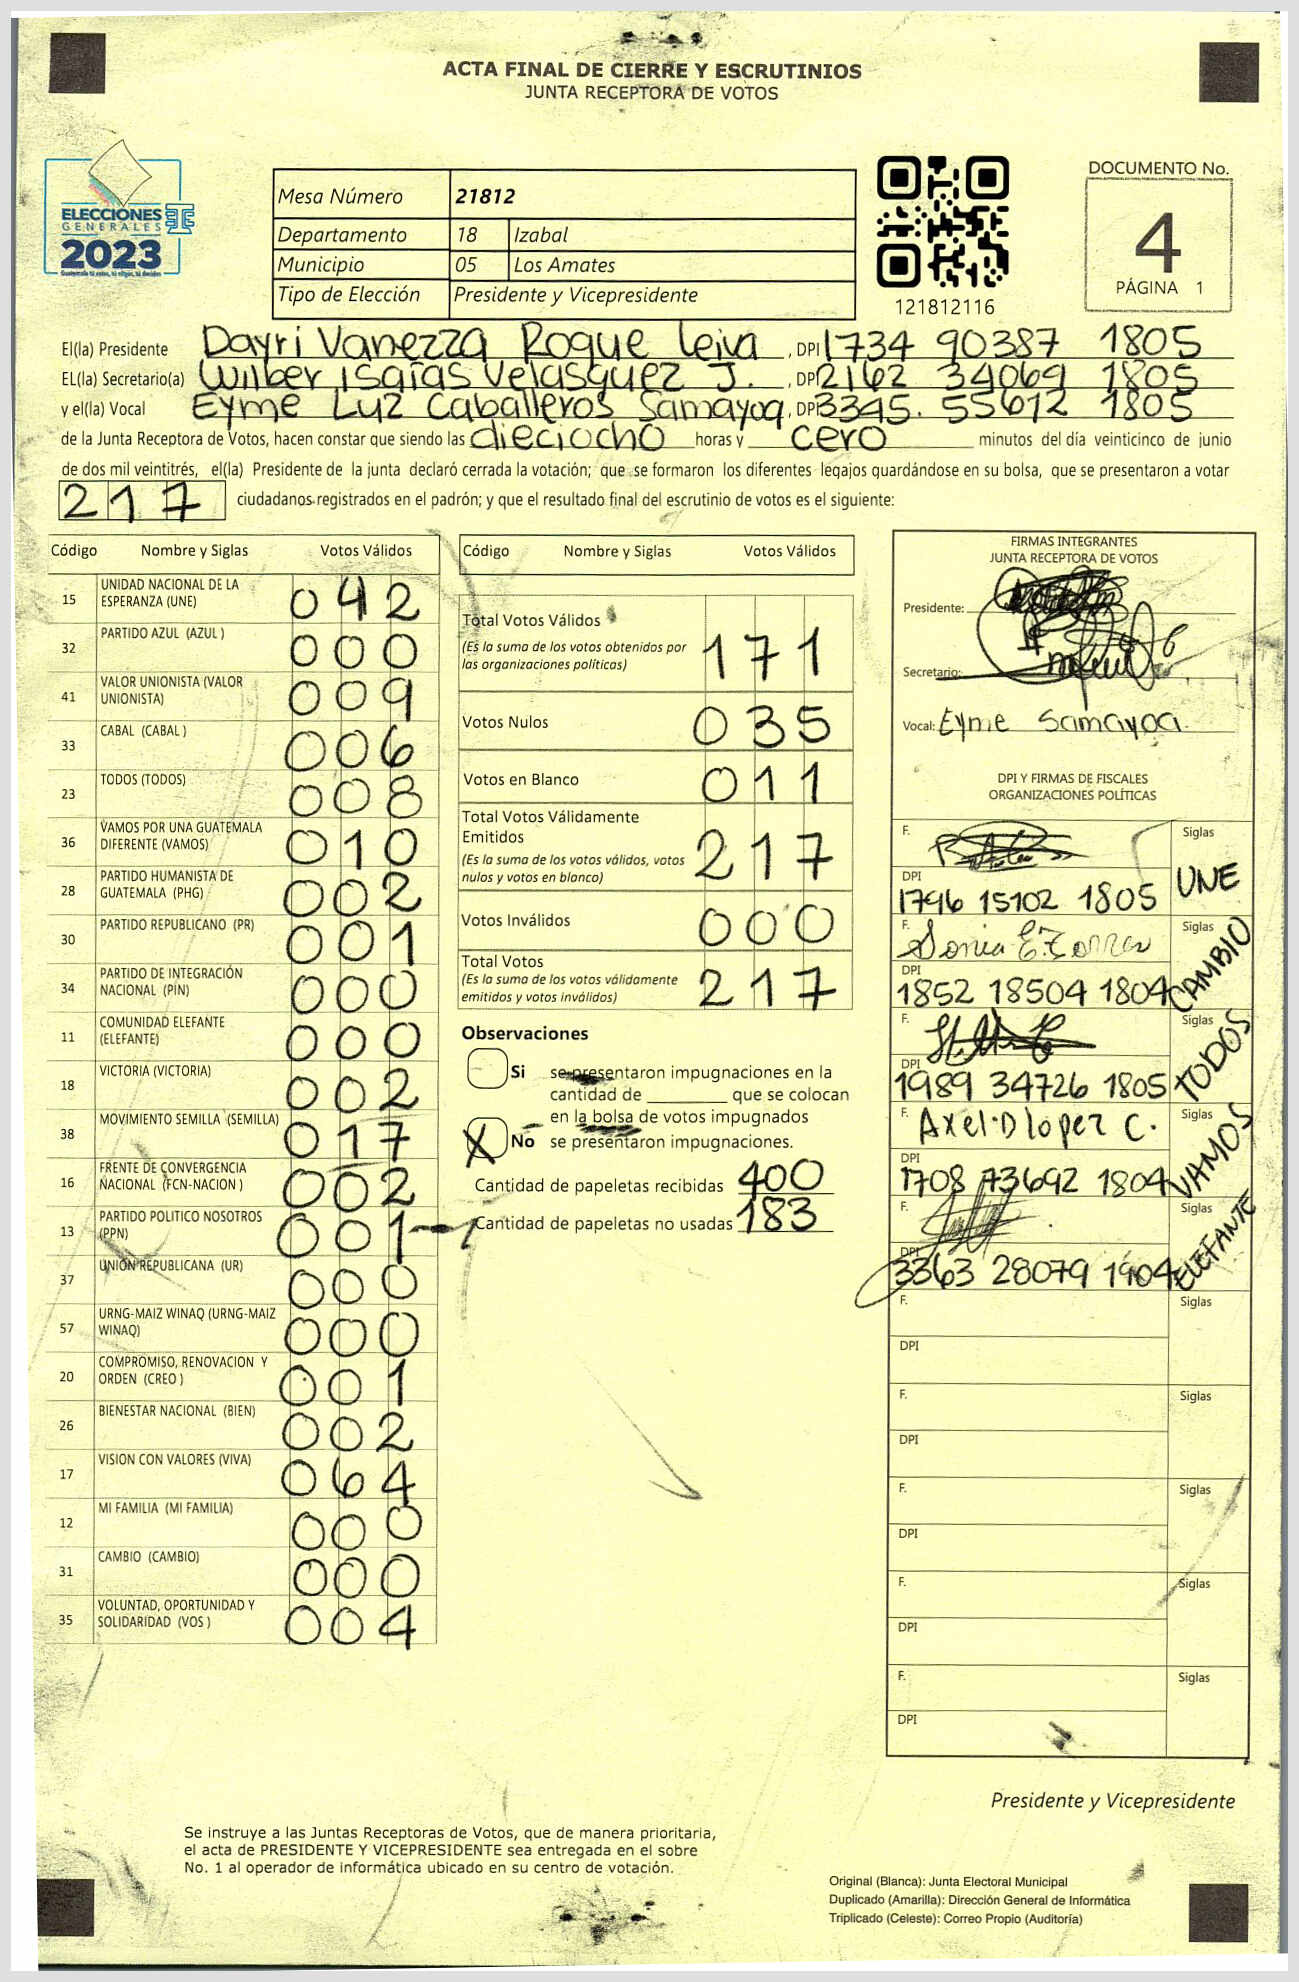 ACTA FINAL DE CIERRE Y ESCRUTINIOS
JUNTA RECEPTORA DE VOTOS
ELECCIONES
GENERALES
2023
Mesa Número 21812
Departamento 18 Izabal
Municipio 05 Los Amates
Tipo de Elección Presidente y Vicepresidente
121812116
DOCUMENTO No.
4
PÁGINA 1
El(la) Presidente Dayri Vanezza Roque Leiva , DPI 1734 90387 1805
EL(la) Secretario(a) Wilber isaías Velasquez J. , DPI 2162 34069 1805
y el(la) Vocal Eyme Luz Caballeros Samayoa , DPI 3345. 55612 1805
de la Junta Receptora de Votos, hacen constar que siendo las dieciocho horas y cero minutos del día veinticinco de junio
de dos mil veintitrés, el(la) Presidente de la junta declaró cerrada la votación; que se formaron los diferentes legajos guardándose en su bolsa, que se presentaron a votar
217 ciudadanos registrados en el padrón; y que el resultado final del escrutinio de votos es el siguiente:
Código Nombre y Siglas Votos Válidos
15 UNIDAD NACIONAL DE LA
ESPERANZA (UNE) 042
32 PARTIDO AZUL (AZUL ) 000
41 VALOR UNIONISTA (VALOR
UNIONISTA) 009
33 CABAL (CABAL ) 006
23 TODOS (TODOS) 008
36 VAMOS POR UNA GUATEMALA
DIFERENTE (VAMOS) 010
28 PARTIDO HUMANISTA DE
GUATEMALA (PHG) 002
30 PARTIDO REPUBLICANO (PR) 001
34 PARTIDO DE INTEGRACIÓN
NACIONAL (PIN) 000
11 COMUNIDAD ELEFANTE
(ELEFANTE) 000
18 VICTORIA (VICTORIA) 002
38 MOVIMIENTO SEMILLA (SEMILLA) 017
16 FRENTE DE CONVERGENCIA
NACIONAL (FCN-NACION ) 002
13 PARTIDO POLITICO NOSOTROS
(PPN) 001
37 UNION REPUBLICANA (UR) 000
57 URNG-MAIZ WINAQ (URNG-MAIZ
WINAQ) 000
20 COMPROMISO, RENOVACION Y
ORDEN (CREO ) 001
26 BIENESTAR NACIONAL (BIEN) 002
17 VISION CON VALORES (VIVA) 064
12 MI FAMILIA (MI FAMILIA) 000
31 CAMBIO (CAMBIO) 000
35 VOLUNTAD, OPORTUNIDAD Y
SOLIDARIDAD (VOS ) 004
Código Nombre y Siglas Votos Válidos
Total Votos Válidos
(Es la suma de los votos obtenidos por
las organizaciones políticas) 171
Votos Nulos 035
Votos en Blanco 011
Total Votos Válidamente
Emitidos
(Es la suma de los votos válidos, votos
nulos y votos en blanco) 217
Votos Inválidos 000
Total Votos
(Es la suma de los votos válidamente
emitidos y votos inválidos) 217
Observaciones
Si se presentaron impugnaciones en la
cantidad de ________ que se colocan
en la bolsa de votos impugnados
X No se presentaron impugnaciones.
Cantidad de papeletas recibidas 400
Cantidad de papeletas no usadas 183
FIRMAS INTEGRANTES
JUNTA RECEPTORA DE VOTOS
Presidente:
Secretario:
Vocal: Eyme Samayoa.
DPI Y FIRMAS DE FISCALES
ORGANIZACIONES POLÍTICAS
F. Siglas
DPI UNE
1796 15102 1805
F. Sonia E. Torres Siglas
DPI CAMBIO
1852 18504 1804
F. Siglas
DPI TODOS
1989 34726 1805
F. Axel D lopez C. Siglas
DPI VAMOS
1708 73692 1804
F. Siglas
DPI ELEFANTE
3363 28079 1904
F. Siglas
DPI
F. Siglas
DPI
F. Siglas
DPI
F. Siglas
DPI
F. Siglas
DPI
Presidente y Vicepresidente
Se instruye a las Juntas Receptoras de Votos, que de manera prioritaria,
el acta de PRESIDENTE Y VICEPRESIDENTE sea entregada en el sobre
No. 1 al operador de informática ubicado en su centro de votación.
Original (Blanca): Junta Electoral Municipal
Duplicado (Amarilla): Dirección General de Informática
Triplicado (Celeste): Correo Propio (Auditoría)